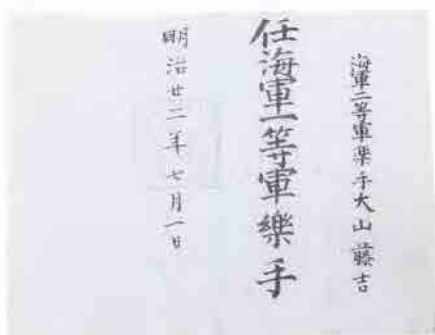 海軍二等軍樂手大山藤吉
任海軍一等軍樂手
明治廿二年七月一日